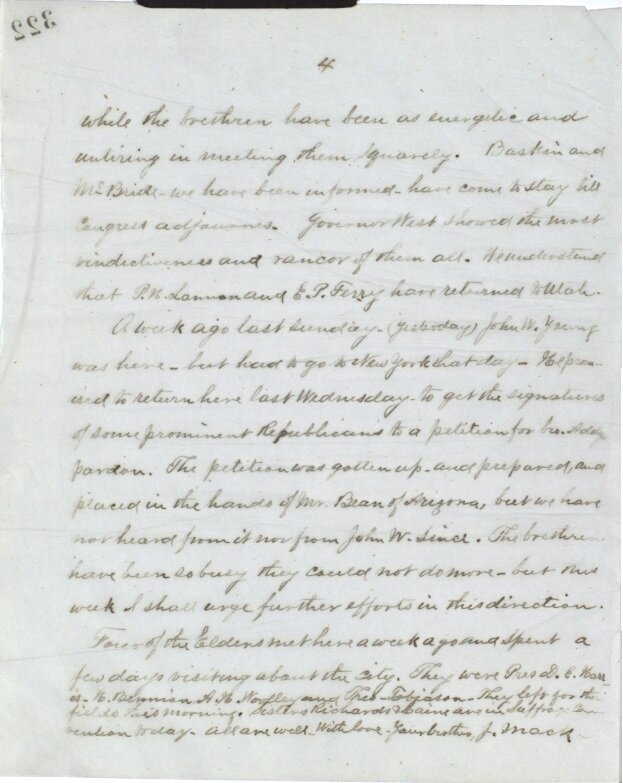 322
4
while the brethren have been as energetic and
untiring in meeting them squarely. Baskin and
McBride - we have been informed - have come to stay till
Congress adjournes. Governor West showed the most
vindictiveness and rancor of them all. We understand
that P. H. Lannan and E. P. Ferry have returned to Utah.
A week ago last Sunday - (yesterday) John W. Young
was here - but had to go to New York that day - He prom-
ised to return here last Wednesday - to get the signatures
of some prominent Republicans to a petition for bro.
pardon. The petition was gotten up - and prepared, and
placed in the hands of Mr. Bean of Arizona, but we have
not heard from it nor from John W. since. The brethren
have been so busy they could not do more - but this
week I shall urge further efforts in this direction.
Four of the Elders met here a week ago and spent a
few days visiting about the city. They were Pres
H. Bennion A. H. and Theo Tobiason - They left for the
fields this morning. Sisters Richards & Caine are in Suffrage Con-
vention today - All are well - With love - Your brother, J. Mack -